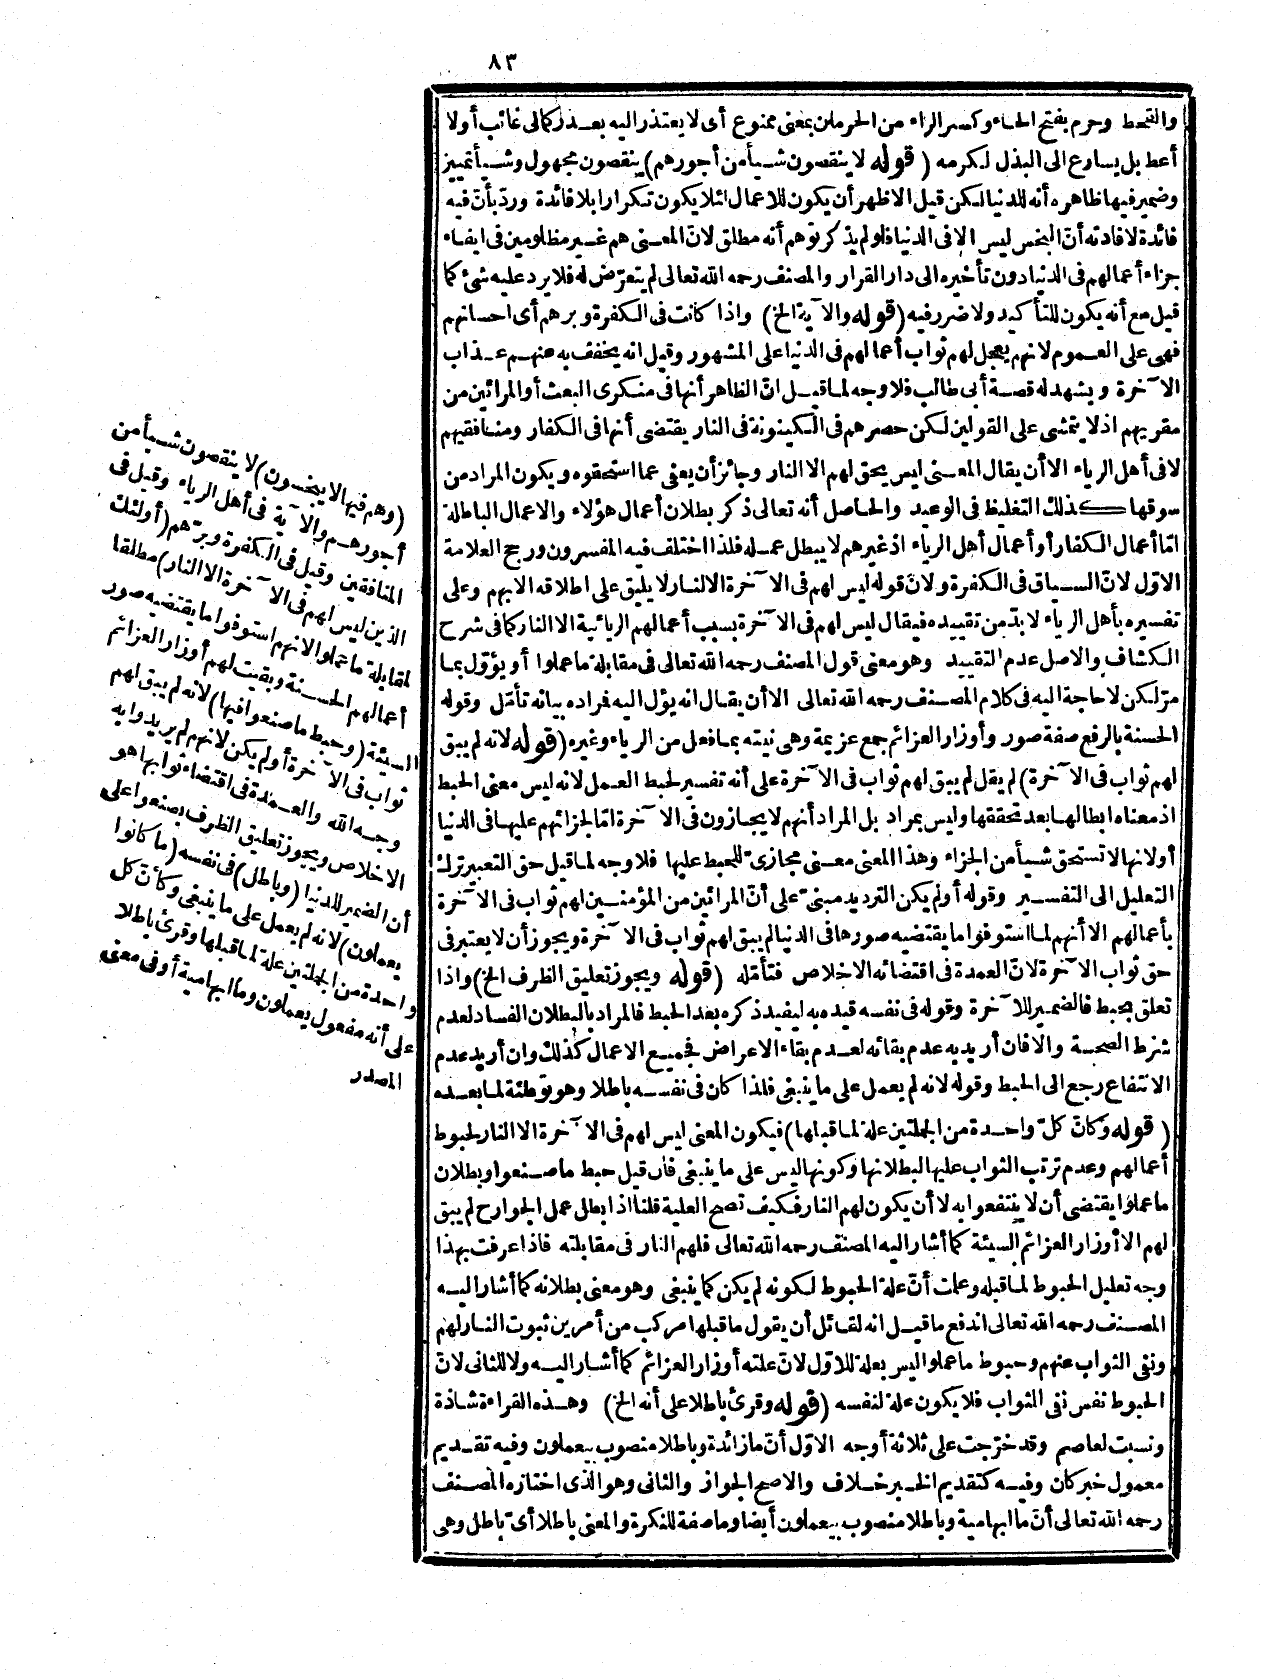 ٨٣
والقحط وحرم بفتح الحاء وكسر الراء من الحرمان بمعنى ممنوع أى لا يعتذر اليه بعذر كمالى غائب أولا
أعط بل يسارع الى البذل لكرمه (قوله لا ينقصون شيأ من أجورهم) ينقصون مجهول وشيأ تمييز
وضمير فيها ظاهره أنه للدنيا لكن قيل الاظهر أن يكون للاعمال لئلا يكون تكرارا بلا فائدة وردّ بأن فيه
فائدة لافادته أنّ البخس ليس الا فى الدنيا فلو لم يذكر توهم أنه مطلق لانّ المعنى هم غير مظلومين فى ايفاء
جزاء أعمالهم فى الدنيا دون تأخيره الى دار القرار والمصنف رحمه الله تعالى لم يتعرّض له فلا يرد عليه شئ كما
قيل مع أنه يكون للتأكيد ولا ضرر فيه (قوله والآية الخ) واذا كانت فى الكفرة وبرهم أى احسانهم
فهى على العموم لانهم يعجل لهم ثواب أعمالهم فى الدنيا على المشهور وقيل انه يخفف به عنهم عذاب
الآخرة ويشهد له قصة أبى طالب فلا وجه لما قيل انّ الظاهر أنها فى منكرى البعث أو المرائين من
مقريهم اذ لا يتمشى على القولين لكن حصرهم فى الكينونة فى النار يقتضى أنها فى الكفار ومنافقيهم
لا فى أهل الرياء الا أن يقال المعنى ليس يحق لهم الا النار وجائز أن يعفى عما استحقوه ويكون المراد من
سوقها كذلك التغليظ فى الوعيد والحاصل أنه تعالى ذكر بطلان أعمال هؤلاء والاعمال الباطلة
امّا أعمال الكفار أو أعمال أهل الرياء اذ غيرهم لا يبطل عمله فلذا اختلف فيه المفسرون ورجح العلامة
الاوّل لانّ السياق فى الكفرة ولانّ قوله ليس لهم فى الآخرة الا النار لا يليق على اطلاقه الا بهم وعلى
تفسيره بأهل الرياء لا بدّ من تقييده فيقال ليس لهم فى الآخرة بسبب أعمالهم الريائية الا النار كما فى شرح
الكشاف والاصل عدم التقييد وهو معنى قول المصنف رحمه الله تعالى فى مقابلة ما عملوا أو يؤوّل بما
مرّ لكن لا حاجة اليه فى كلام المصنف رحمه الله تعالى الا أن يقال انه يؤل اليه فراده بيانه تأمّل وقوله
الحسنة بالرفع صفة صور وأوزار العزائم جمع عزيمة وهى نيته بما فعل من الرياء وغيره (قوله لانه لم يبق
لهم ثواب فى الآخرة) لم يقل لم يبق لهم ثواب فى الآخرة على أنه تفسير لحبط العمل لانه ليس معنى الحبط
اذ معناه ابطالها بعد تحققها وليس بمراد بل المراد أنهم لا يجازون فى الآخرة امّا لجزائهم عليها فى الدنيا
أو لانها لا تستحق شيأ من الجزاء وهذا المعنى معنى مجازىّ للحبط عليها فلا وجه لما قيل حق التعبير ترك
التعليل الى التفسير وقوله أو لم يكن الترديد مبنىّ على أنّ المرائين من المؤمنين لهم ثواب فى الآخرة
بأعمالهم الا أنهم لما استوفوا ما يقتضيه صورها فى الدنيا لم يبق لهم ثواب فى الآخرة ويجوز أن لا يعتبر فى
حق ثواب الآخرة لانّ العمدة فى اقتضائه الاخلاص فتأمّله (قوله ويجوز تعليق الظرف الخ) واذا
تعلق بحبط فالضمير للآخرة وقوله فى نفسه قيده به ليفيد ذكره بعد الحبط فالمراد بالبطلان الفساد لعدم
شرط الصحة والا فان أريد به عدم بقائه لعدم بقاء الاعراض فجميع الاعمال كذلك وان أريد عدم
الانتفاع رجع الى الحبط وقوله لانه لم يعمل على ما ينبغى فلذا كان فى نفسه باطلا وهو توطئة لما بعده
(قوله وكانّ كلّ واحدة من الجملتين علة لما قبلها) فيكون المعنى ليس لهم فى الآخرة الا النار لحبوط
أعمالهم وعدم ترتب الثواب عليها لبطلانها وكونها ليس على ما ينبغى فان قيل حبط ما صنعوا وبطلان
ما عملوا يقتضى أن لا ينتفعوا به لا أن يكون لهم النار فكيف تصح العلية قلنا اذا بطل عمل الجوارح لم يبق
لهم الا أوزار العزائم السيئة كما أشار اليه المصنف رحمه الله تعالى فلهم النار فى مقابلته فاذا عرفت بهذا
وجه تعليل الحبوط لما قبله وعلمت أنّ علة الحبوط لكونه لم يكن كما ينبغى وهو معنى بطلانه كما أشار اليه
المصنف رحمه الله تعالى اندفع ما قيل انه لقائل أن يقول ما قبلها مركب من أمرين ثبوت النار لهم
ونفى الثواب عنهم وحبوط ما عملوا ليس بعلة للاوّل لانّ علته أوزار العزائم كما أشار اليه ولا للثانى لانّ
الحبوط نفس نفى الثواب فلا يكون علة لنفسه (قوله وقرئ باطلا على أنه الخ) وهذه القراءة شاذة
ونسبت لعاصم وقد خرّجت على ثلاثة أوجه الاوّل أنّ ما زائدة وباطلا منصوب بيعملون وفيه تقديم
معمول خبر كان وفيه كتقديم الخبر خلاف والاصح الجواز والثانى وهو الذى اختاره المصنف
رحمه الله تعالى أنّ ما ابهامية وباطلا منصوب بيعملون أيضا وما صفة للنكرة والمعنى باطلا أىّ باطل وهى
(وهم فيها لا يبخسون) لا ينقصون شيأ من
أجورهم والآية فى أهل الرياء وقيل فى
المنافقين وقيل فى الكفرة وبرّهم (أولئك
الذين ليس لهم فى الآخرة الا النار) مطلقا
لمقابلة ما عملوا لانهم استوفوا ما يقتضيه صور
أعمالهم الحسنة وبقيت لهم أوزار العزائم
السيئة (وحبط ما صنعوا فيها) لانه لم يبق لهم
ثواب فى الآخرة أو لم يكن لانهم لم يريدوا به
وجه الله والعمدة فى اقتضاء ثوابها هو
الاخلاص ويجوز تعليق الظرف بصنعوا على
أن الضمير للدنيا (وباطل) فى نفسه (ما كانوا
يعملون) لانه لم يعمل على ما ينبغى وكأنّ كل
واحدة من الجملتين علة لما قبلها وقرئ باطلا
على أنه مفعول يعملون وما ابهامية أو فى معنى
المصدر